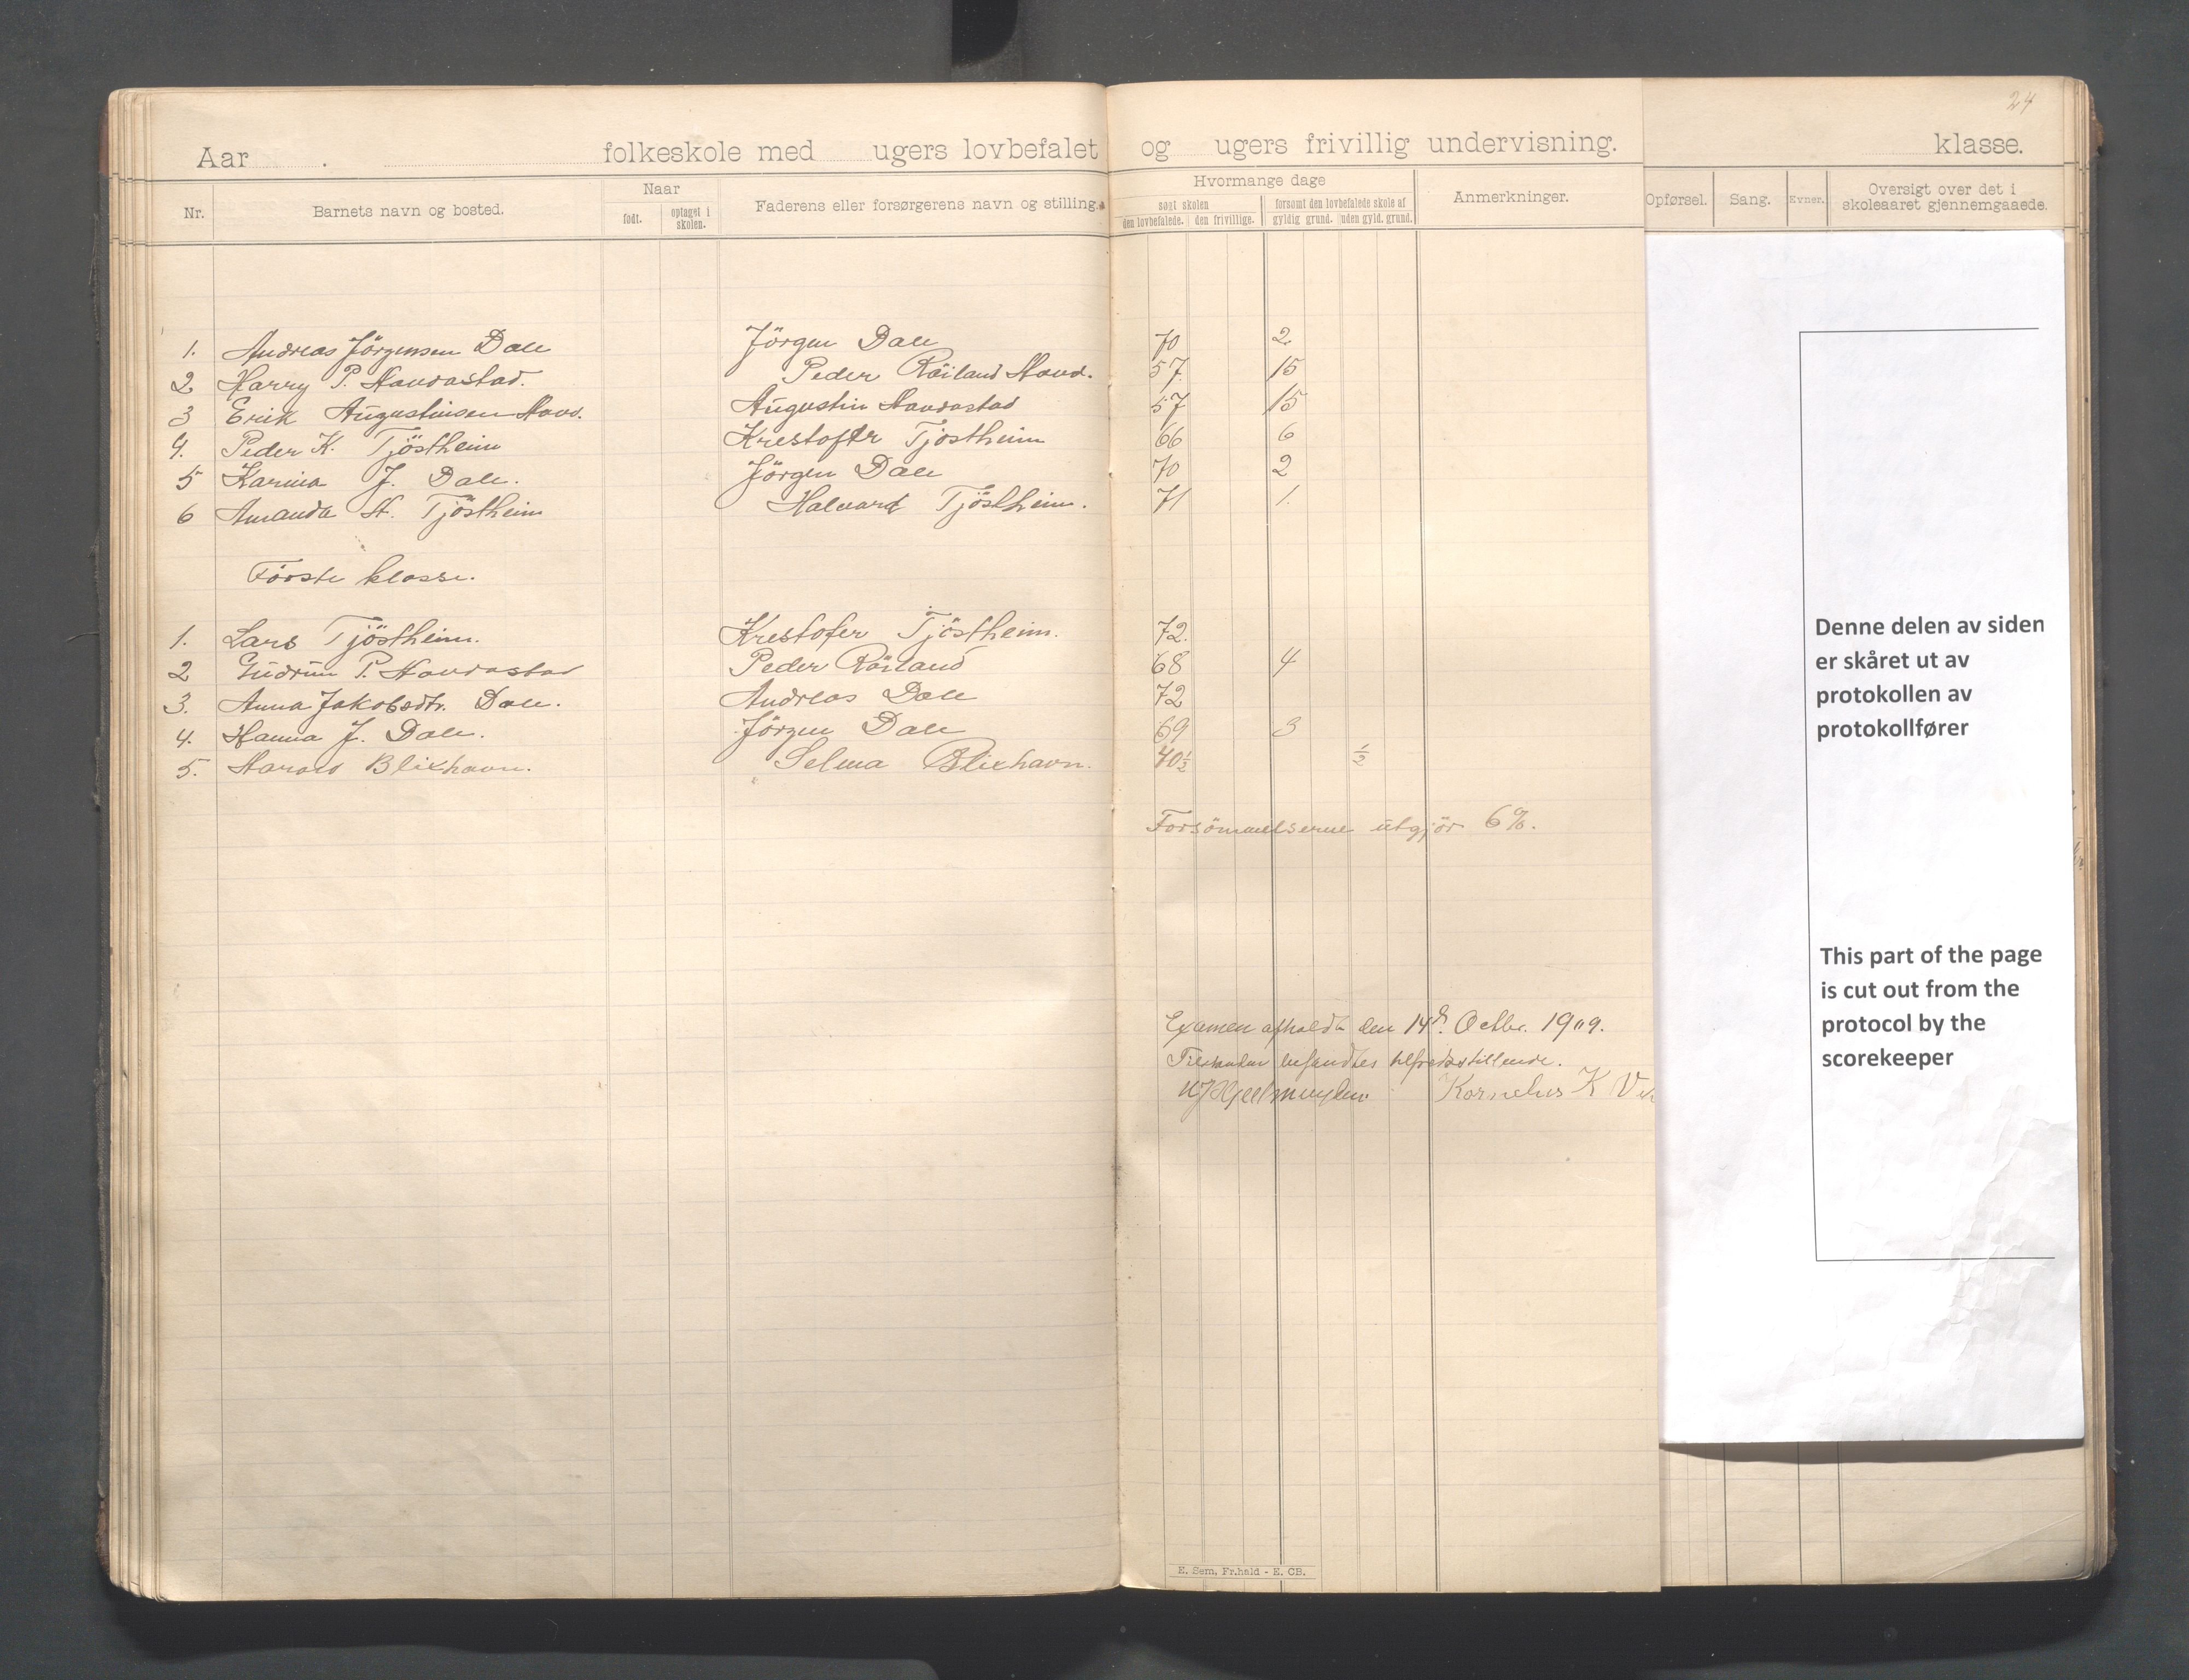 24
Aar . folkeskole med ugers lovbefalet og ugers frivillig undervisning. klasse.
Nr. Barnets navn og bosted. Naar født. optaget i skolen. Faderens eller forsørgerens navn og stilling. Hvormange dage søgt skolen den lovbefalede. den frivillige. forsømt den lovbefalede skole af gyldig grund. uden gyld. grund. Anmerkninger. Opførsel. Sang. Evner. Oversigt over det i skoleaaret gjennemgaaede.
1. Andreas Jörgensen Dale Jörgen Dale 70 2
2 Harry P. Havdastad. Peder Röiland Havd. 57 15
3 Erik Augustinsen Havd. Augustin Havdastad 57 15
4. Peder K. Tjöstheim Krestofer Tjöstheim 66 6
5 Karina J. Dale. Jörgen Dale 70 2
6 Amanda H. Tjöstheim Halvard Tjöstheim. 71 1.
Förste klasse.
1. Lars Tjöstheim. Krestofer Tjöstheim. 72.
2 Gudrun P. Havdastad Peder Röiland 68 4
3. Anna Jakobsdtr. Dale. Andreas Dale 72
4. Hanna J. Dale. Jörgen Dale 69 3
5. Harald Blixhavn. Selma Blixhavn. 40½ ½
Forsömmelserne utgjör 6%.
Examen afholdt den 14de Octbr. 1909.
befandtes tilfredsstillende.
Kornelius K
E. Sem, Fr.hald - E. CB.
Denne delen av siden
er skåret ut av
protokollen av
protokollfører
This part of the page
is cut out from the
protocol by the
scorekeeper